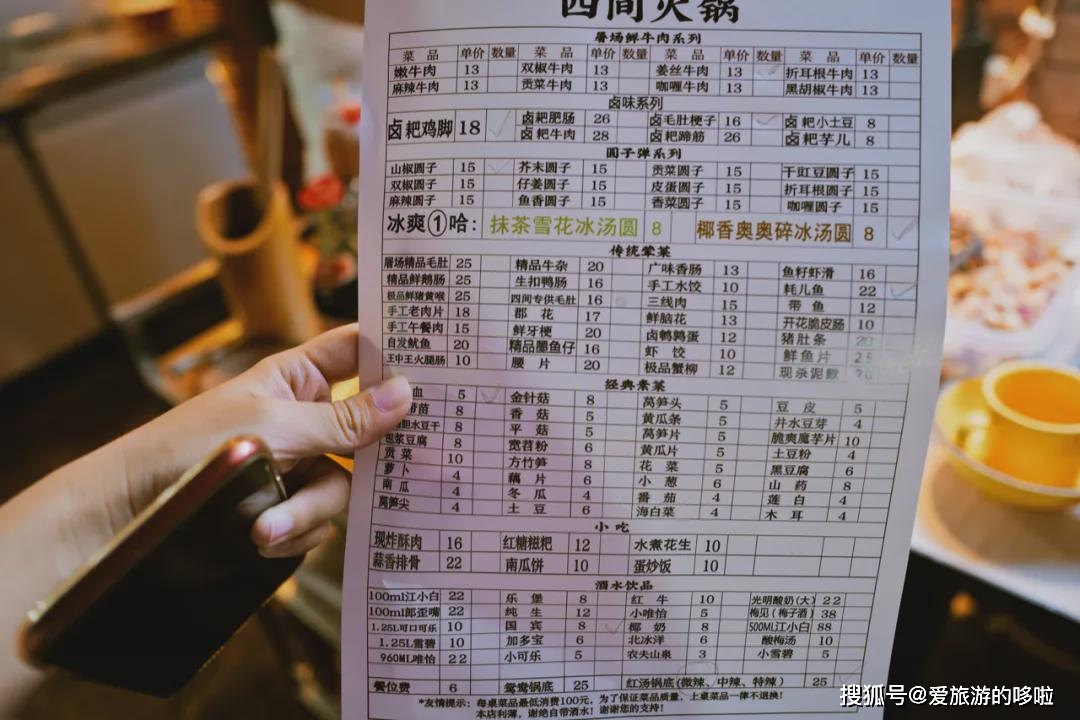 四间火锅
屠场鲜牛肉系列
菜 品 单价 数量 菜 品 单价 数量 菜 品 单价 数量 菜 品 单价 数量
嫩牛肉 13 双椒牛肉 13 姜丝牛肉 13 折耳根牛肉 13
麻辣牛肉 13 贡菜牛肉 13 咖喱牛肉 13 黑胡椒牛肉 13
卤味系列
卤粑鸡脚 18 卤粑肥肠 26 卤毛肚梗子 16 卤粑小土豆 8
卤粑牛肉 28 卤粑蹄筋 26 卤粑芋儿 8
圆子弹系列
山椒圆子 15 芥末圆子 15 贡菜圆子 15 干豇豆圆子 15
双椒圆子 15 仔姜圆子 15 皮蛋圆子 15 折耳根圆子 15
麻辣圆子 15 鱼香圆子 15 香菜圆子 15 咖喱圆子 15
冰爽①哈: 抹茶雪花冰汤圆 8 椰香奥奥碎冰汤圆 8
传统荤菜
屠场精品毛肚 25 精品牛杂 20 广味香肠 13 鱼籽虾滑 16
精品鲜鹅肠 25 生扣鸭肠 16 手工水饺 10 耗儿鱼 22
极品鲜猪黄喉 25 四间专供毛肚 16 三线肉 15 带鱼 12
手工老肉片 18 郡花 17 鲜脑花 13 开花脆皮肠 10
手工午餐肉 15 鲜牛梗 20 卤鹌鹑蛋 12 猪肚条 20
自发鱿鱼 20 精品墨鱼仔 16 虾饺 10 鲜鱼片 25
王中王火腿肠 10 腰片 20 极品蟹柳 12 现杀泥鳅 20
经典素菜
血 5 金针菇 8 莴笋头 5 豆皮 5
苗 8 香菇 5 黄瓜条 5 井水豆芽 4
胆水豆干 8 平菇 5 莴笋片 5 脆爽魔芋片 10
包浆豆腐 8 宽苕粉 6 黄瓜片 5 土豆粉 4
贡菜 10 方竹笋 8 花菜 5 黑豆腐 6
萝卜 4 藕片 6 小葱 6 山药 8
南瓜 4 冬瓜 4 番茄 4 莲白 4
莴笋尖 4 土豆 6 海白菜 4 木耳 4
小吃
现炸酥肉 16 红糖糍粑 12 水煮花生 10
蒜香排骨 22 南瓜饼 10 蛋炒饭 10
酒水饮品
100ml江小白 22 乐堡 8 红牛 10 光明酸奶(大) 22
100ml郎歪嘴 22 纯生 12 小唯怡 5 梅见(梅子酒) 38
1.25L可口可乐 10 国宾 8 椰奶 8 500ML江小白 88
1.25L雪碧 10 加多宝 6 北冰洋 6 酸梅汤 10
960ML唯怡 22 小可乐 5 农夫山泉 3 小雪碧 5
餐位费 6 鸳鸯锅底 25 红汤锅底(微辣、中辣、特辣) 25
*友情提示: 每桌菜品最低消费100元, 为了保证菜品质量, 上桌菜品一律不退换!
本店利薄, 谢绝自带酒水! 谢谢您的支持!
搜狐号@爱旅游的哆啦